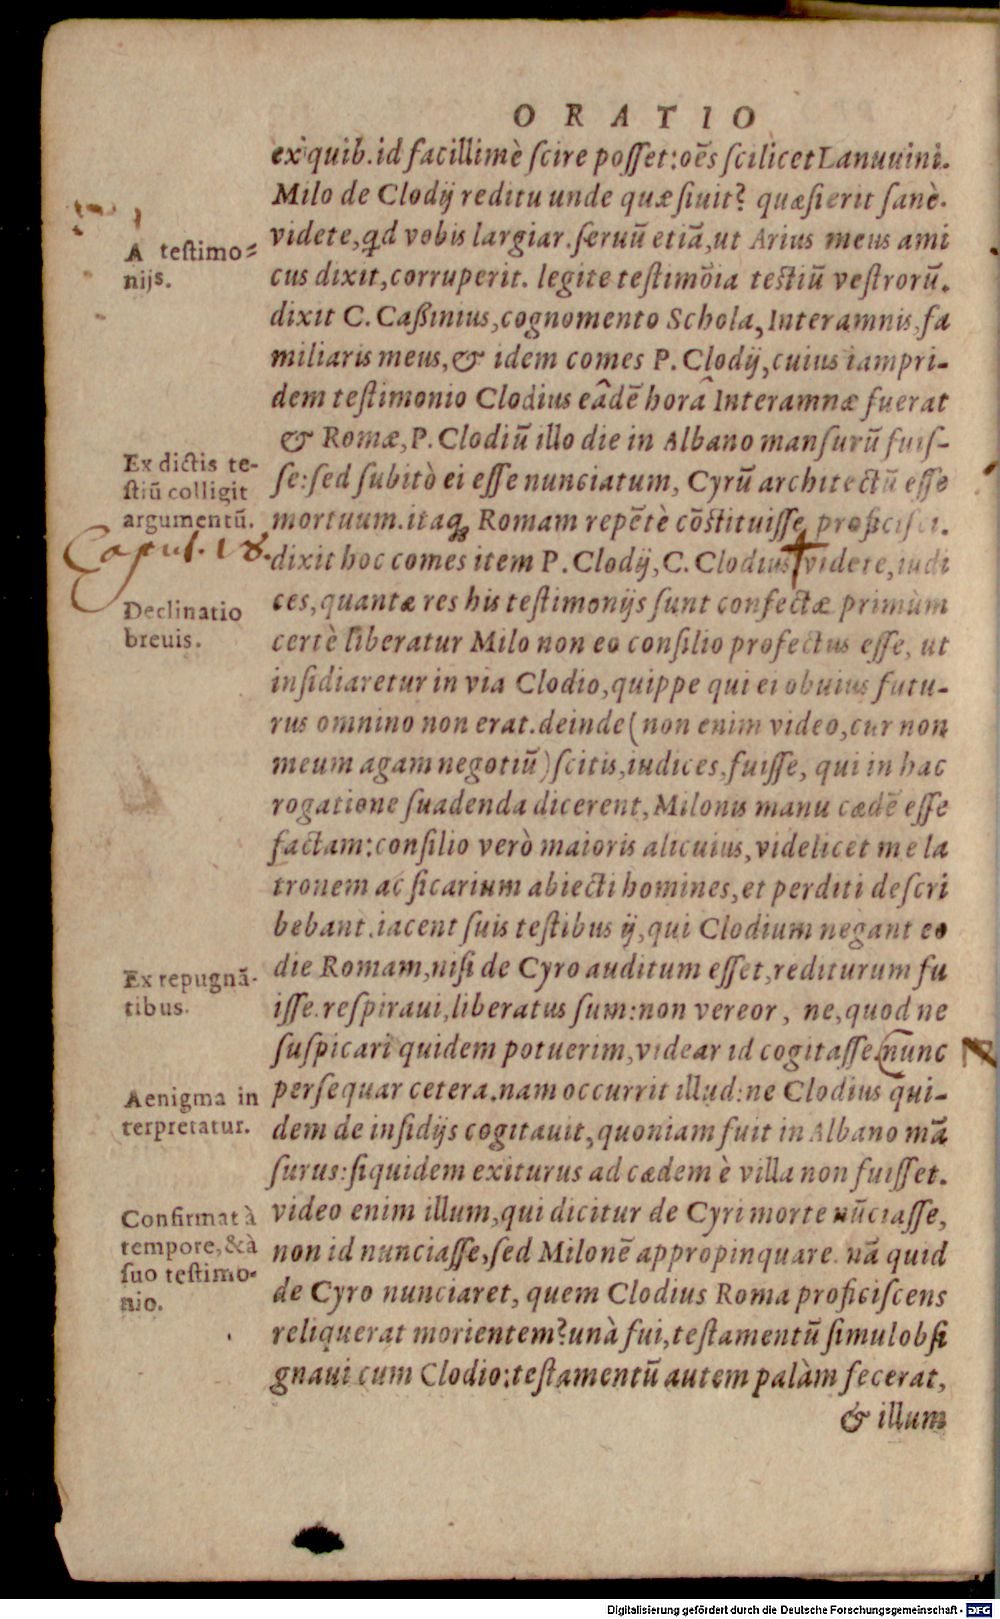 ORATIO
ex quib. id facillimè scire posset: oẽs scilicet Lanuuini.
Milo de Clodij reditu unde quæsiuit? quæsierit sanè.
videte, qd vobis largiar. seruũ etiã, ut Arius meus ami
A testimo=
nijs.
cus dixit, corruperit. legite testimõia testiũ vestrorũ.
dixit C. Caßinius, cognomento Schola, Interamnis, fa
miliaris meus, & idem comes P. Clodij, cuius iampri-
dem testimonio Clodius eâdẽ horâ Interamnæ fuerat
& Romæ, P. Clodiũ illo die in Albano mansurũ fuis-
Ex dictis te-
stiũ colligit
argumentũ.
se: sed subitò ei esse nunciatum, Cyrũ architectũ esse
mortuum. itaq; Romam repẽtè cõstituisse proficisci.
Caput. 18.
dixit hoc comes item P. Clodij, C. Clodius † videte, iudi
Declinatio
breuis.
ces, quantæ res his testimonijs sunt confectæ primùm
certè liberatur Milo non eo consilio profectus esse, ut
insidiaretur in via Clodio, quippe qui ei obuius futu-
rus omnino non erat. deinde (non enim video, cur non
meum agam negotiũ) scitis, iudices, fuisse, qui in hac
rogatione suadenda dicerent, Milonis manu cædẽ esse
factam: consilio verò maioris alicuius, videlicet me la
tronem ac sicarium abiecti homines, et perditi descri
bebant. iacent suis testibus ij, qui Clodium negant eo
Ex repugnã-
tibus.
die Romam, nisi de Cyro auditum esset, rediturum fu
isse. respiraui, liberatus sum: non vereor, ne, quod ne
suspicari quidem potuerim, videar id cogitasse. nunc
Aenigma in
terpretatur.
persequar cetera. nam occurrit illud: ne Clodius qui-
dem de insidijs cogitauit, quoniam fuit in Albano mã
surus: siquidem exiturus ad cædem è villa non fuisset.
Confirmat à
tempore, & à
suo testimo-
nio.
video enim illum, qui dicitur de Cyri morte nũciasse,
non id nunciasse, sed Milonẽ appropinquare. nã quid
de Cyro nunciaret, quem Clodius Roma proficiscens
reliquerat morientem? unà fui, testamentũ simul obsi
gnaui cum Clodio: testamentũ autem palàm fecerat,
& illum
Digitalisierung gefördert durch die Deutsche Forschungsgemeinschaft - DFG